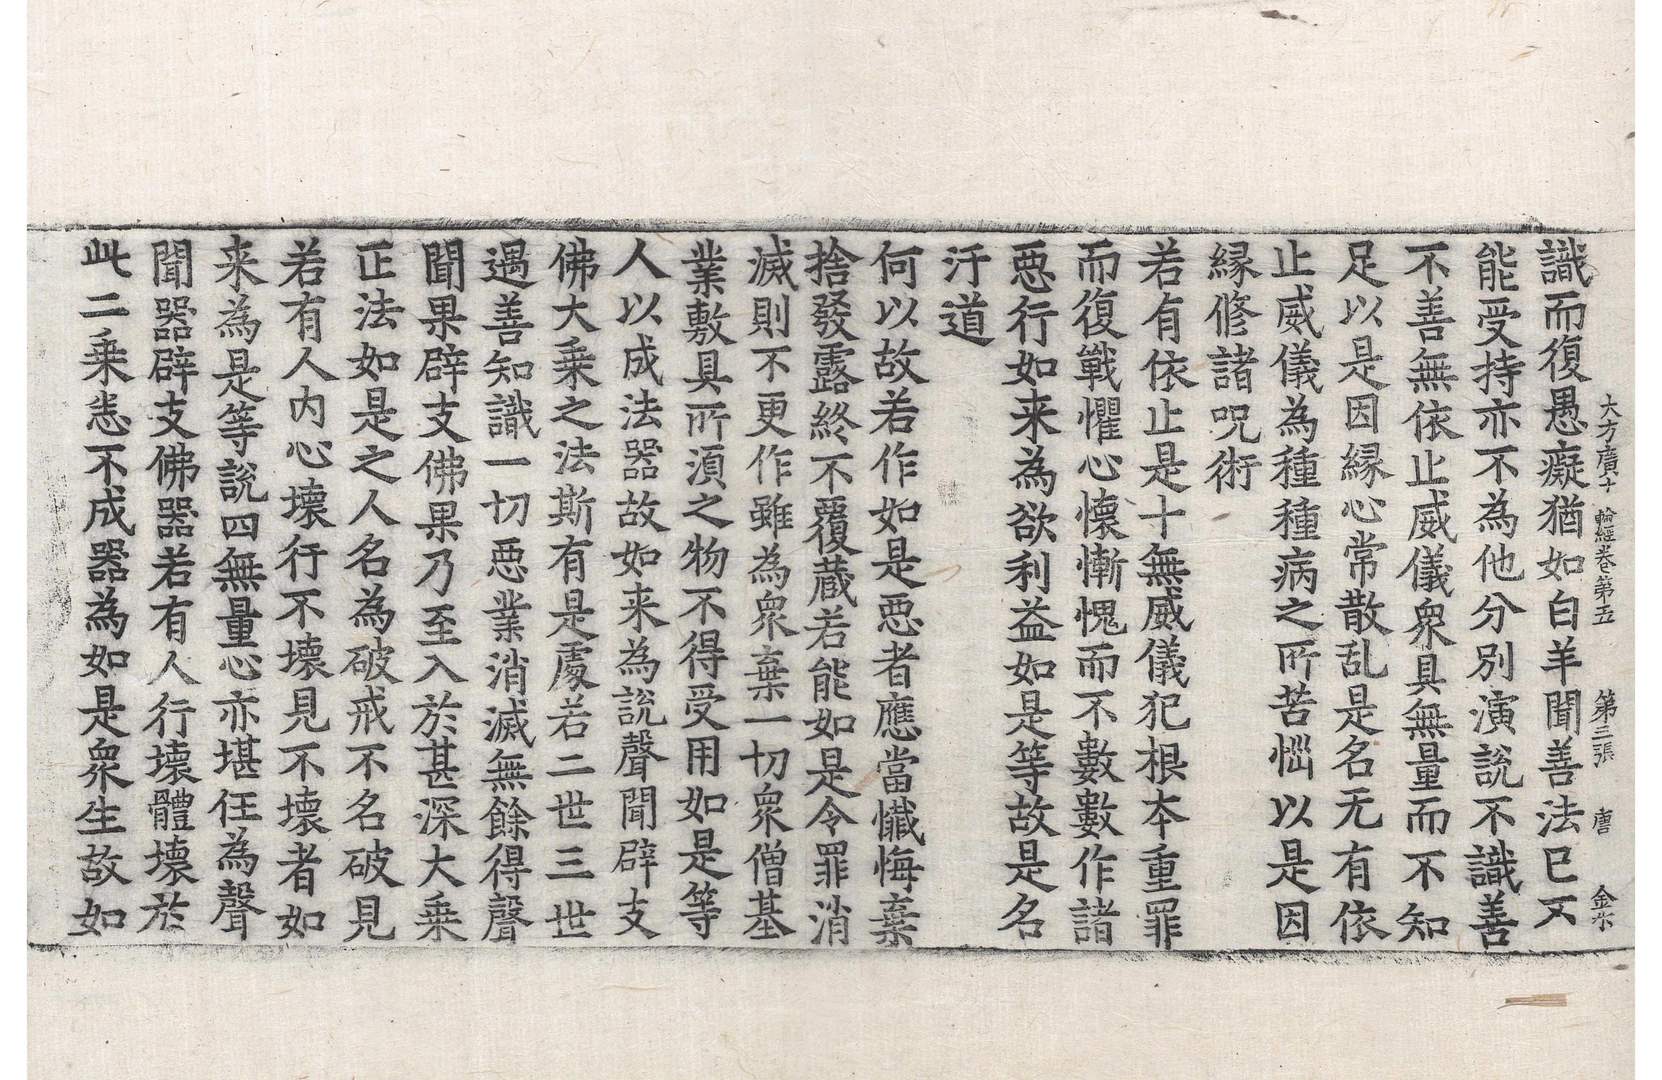 大方廣十輪經卷第五 第三張 唐 金
識而復愚癡猶如白羊聞善法已不
能受持亦不為他分別演說不識善
不善無依止威儀衆具無量而不知
足以是因緣心常散乱是名无有依
止威儀為種種病之所苦惱以是因
緣修諸呪術
若有依止是十無威儀犯根本重罪
而復戰懼心懷慚愧而不數數作諸
惡行如来為欲利益如是等故是名
汙道
何以故若作如是惡者應當懺悔棄
捨發露終不覆蔵若能如是令罪消
滅則不更作雖為衆棄一切衆僧基
業敷具所湏之物不得受用如是等
人以成法器故如来為說聲聞辟支
佛大乗之法斯有是處若二世三世
遇善知識一切惡業消滅無餘得聲
聞果辟支佛果乃至入於甚深大乗
正法如是之人名為破戒不名破見
若有人内心壞行不壞見不壞者如
来為是等說四無量心亦堪任為聲
聞器辟支佛器若有人行壞體壞於
此二乗悉不成器為如是衆生故如